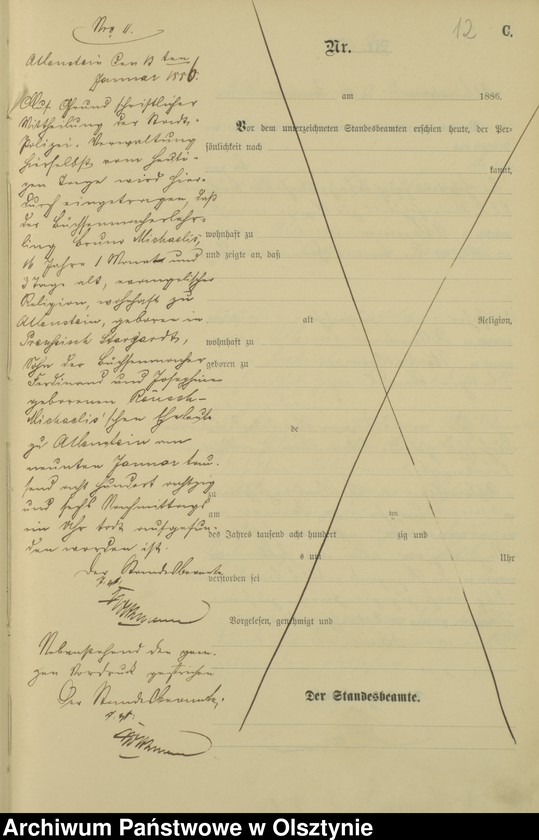 Nro 11.
12
C.
Nr.
Allenstein den 13ten
Januar 1886.
am 1886.
Auf Grund schriftlicher
Mittheilung der Stadt-
Polizei-Verwaltung
hierselbst vom heuti-
gen Tage wird hier-
durch eingetragen, daß
der Büchsenmacherlehr-
ling Bruno Michaelis,
16 Jahre 1 Monat und
3 Tage alt, evangelischer
Religion, wohnhaft zu
Allenstein, geboren in
Preußisch Stargardt,
Sohn der Büchsenmacher
Ferdinand und Josephine
geborenen
Michaelis'schen Eheleute
zu Allenstein am
neunten Januar tau-
send acht hundert achtzig
und sechs Nachmittags
ein Uhr todt aufgefun-
den worden ist.
Der Standesbeamte
Nebenstehend den gan-
zen Vordruck gestrichen
Der Standesbeamte.
Vor dem unterzeichneten Standesbeamten erschien heute, der Per-
sönlichkeit nach
kannt,
wohnhaft zu
und zeigte an, daß
alt Religion,
wohnhaft zu
geboren zu
de
zu
am ten
des Jahres tausend acht hundert zig und
s um Uhr
verstorben sei
Vorgelesen, genehmigt und
Der Standesbeamte.
Archiwum Państwowe w Olsztynie